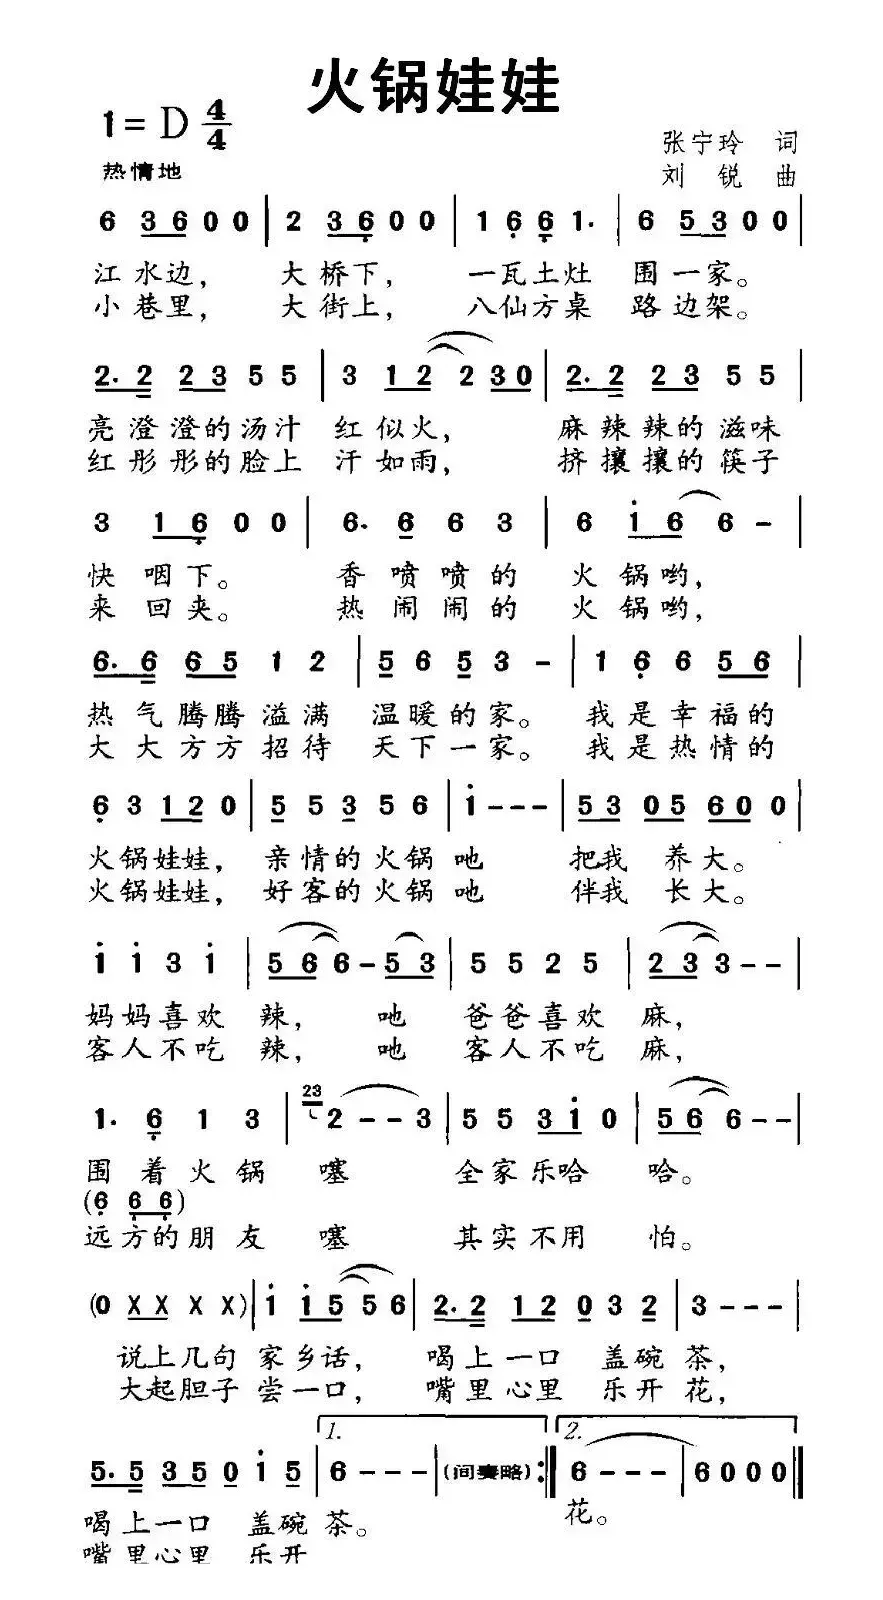 火锅娃娃
1= D 4/4
张宁玲 词
热情地
刘 锐 曲
6 3 6 0 0 | 2 3 6 0 0 | 1 6 6 1· | 6 5 3 0 0 |
江水边, 大桥下, 一瓦土灶 围一家。
小巷里, 大街上, 八仙方桌 路边架。
2· 2 2 3 5 5 | 3 1 2 2 3 0 | 2· 2 2 3 5 5 |
亮澄澄的汤汁 红似火, 麻辣辣的滋味
红彤彤的脸上 汗如雨, 挤攘攘的筷子
3 1 6 0 0 | 6· 6 6 3 | 6 i 6 6 - |
快咽下。 香喷喷的 火锅哟,
来回夹。 热闹闹的 火锅哟,
6· 6 6 5 1 2 | 5 6 5 3 - | 1 6 6 5 6 |
热气腾腾溢满 温暖的家。 我是幸福的
大大方方招待 天下一家。 我是热情的
6 3 1 2 0 | 5 5 3 5 6 | i - - - | 5 3 0 5 6 0 0 |
火锅娃娃, 亲情的火锅吔 把我 养大。
火锅娃娃, 好客的火锅吔 伴我 长大。
i i 3 i | 5 6 6 - 5 3 | 5 5 2 5 | 2 3 3 - - |
妈妈喜欢 辣, 吔 爸爸喜欢 麻,
客人不吃 辣, 吔 客人不吃 麻,
1· 6 1 3 | 23 2 - - 3 | 5 5 3 i 0 | 5 6 6 - - |
围着火锅 噻 全家乐哈 哈。
(6 6 6)
远方的朋友 噻 其实不用 怕。
(0 X X X X) | i i 5 5 6 | 2· 2 1 2 0 3 2 | 3 - - - |
说上几句 家乡话, 喝上一口 盖碗茶,
大起胆子 尝一口, 嘴里心里 乐开花,
1. 2.
5· 5 3 5 0 i 5 | 6 - - - | (间奏略) :‖ 6 - - - | 6 0 0 0 ‖
喝上一口 盖碗茶。 花。
嘴里心里 乐开